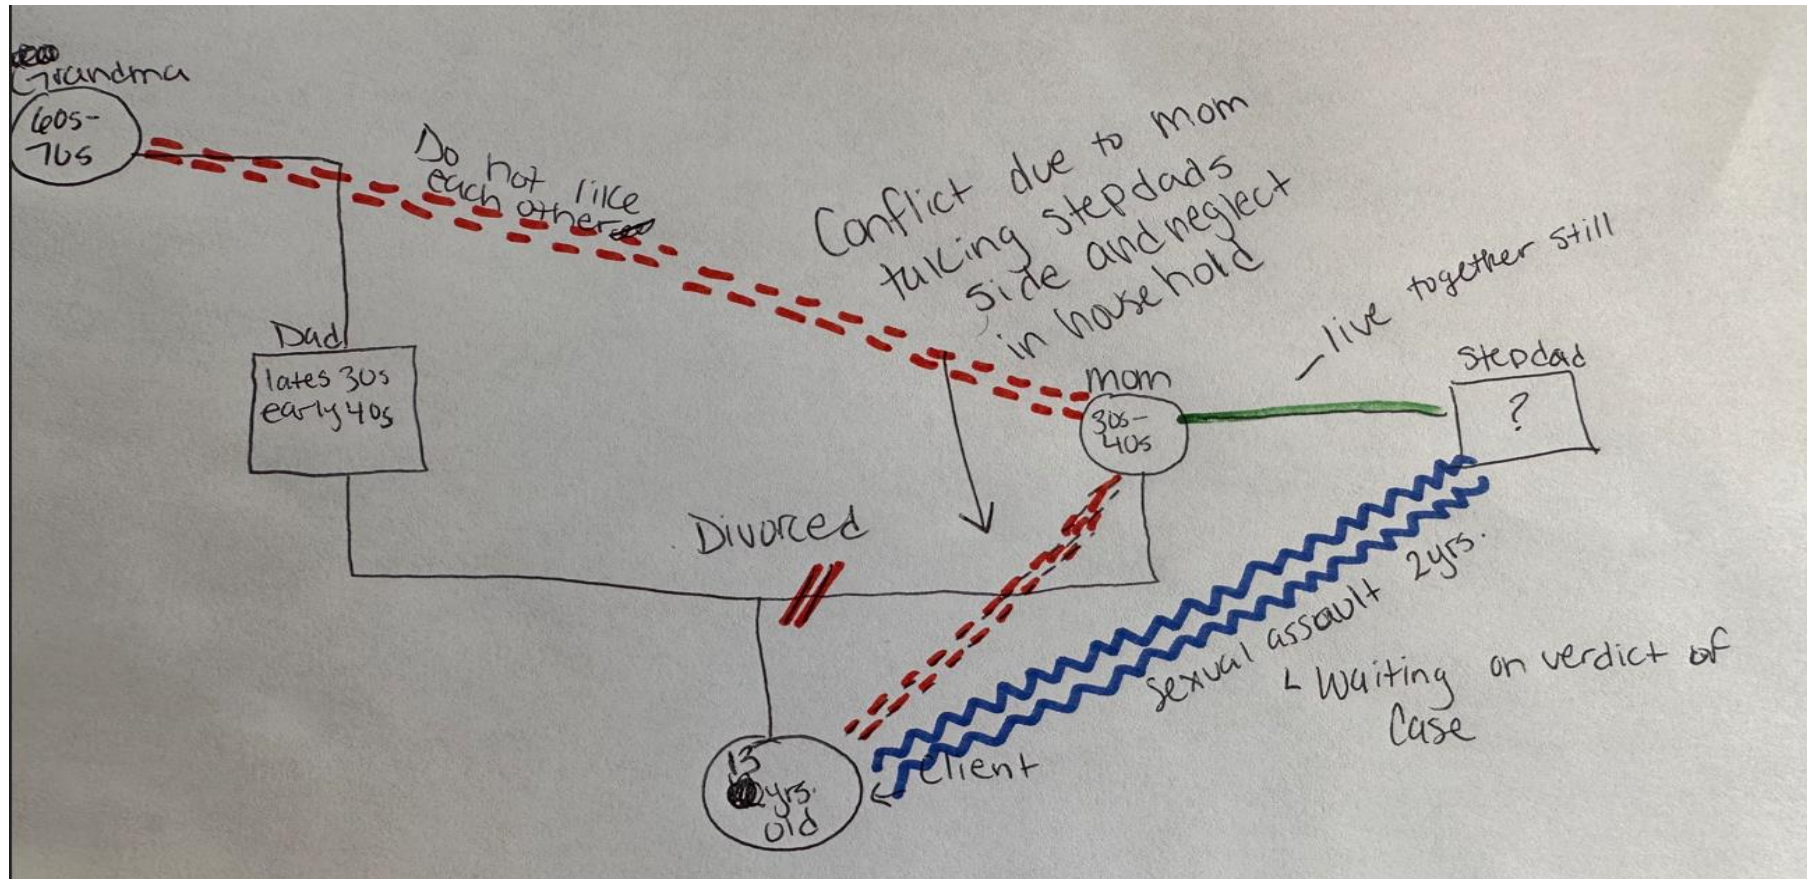 Grandma
60s-
70s
Do not like
each other
Conflict due to mom
taking stepdads
side and neglect
in household
live together still
Dad
lates 30s
early 40s
mom
30s-
40s
Stepdad
?
Divorced
sexual assault 2yrs.
Waiting on verdict of
Case
13
yrs.
old
client